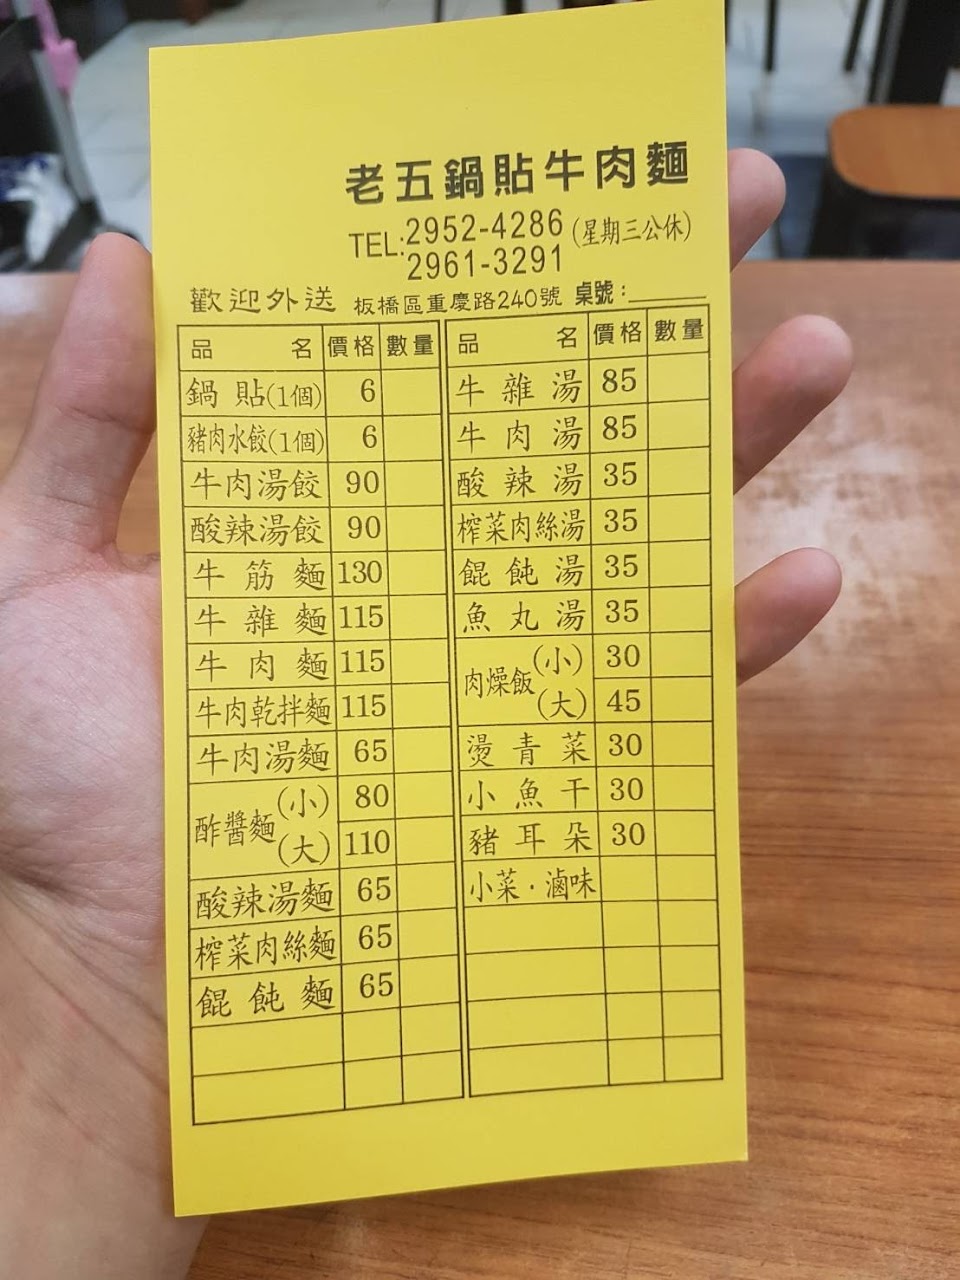 老五鍋貼牛肉麵
TEL:2952-4286 (星期三公休)
2961-3291
歡迎外送 板橋區重慶路240號 桌號:
品名 價格 數量
鍋貼(1個) 6
豬肉水餃(1個) 6
牛肉湯餃 90
酸辣湯餃 90
牛筋麵 130
牛雜麵 115
牛肉麵 115
牛肉乾拌麵 115
牛肉湯麵 65
酢醬麵 (小) 80
(大) 110
酸辣湯麵 65
榨菜肉絲麵 65
餛飩麵 65
品名 價格 數量
牛雜湯 85
牛肉湯 85
酸辣湯 35
榨菜肉絲湯 35
餛飩湯 35
魚丸湯 35
肉燥飯 (小) 30
(大) 45
燙青菜 30
小魚干 30
豬耳朵 30
小菜·滷味